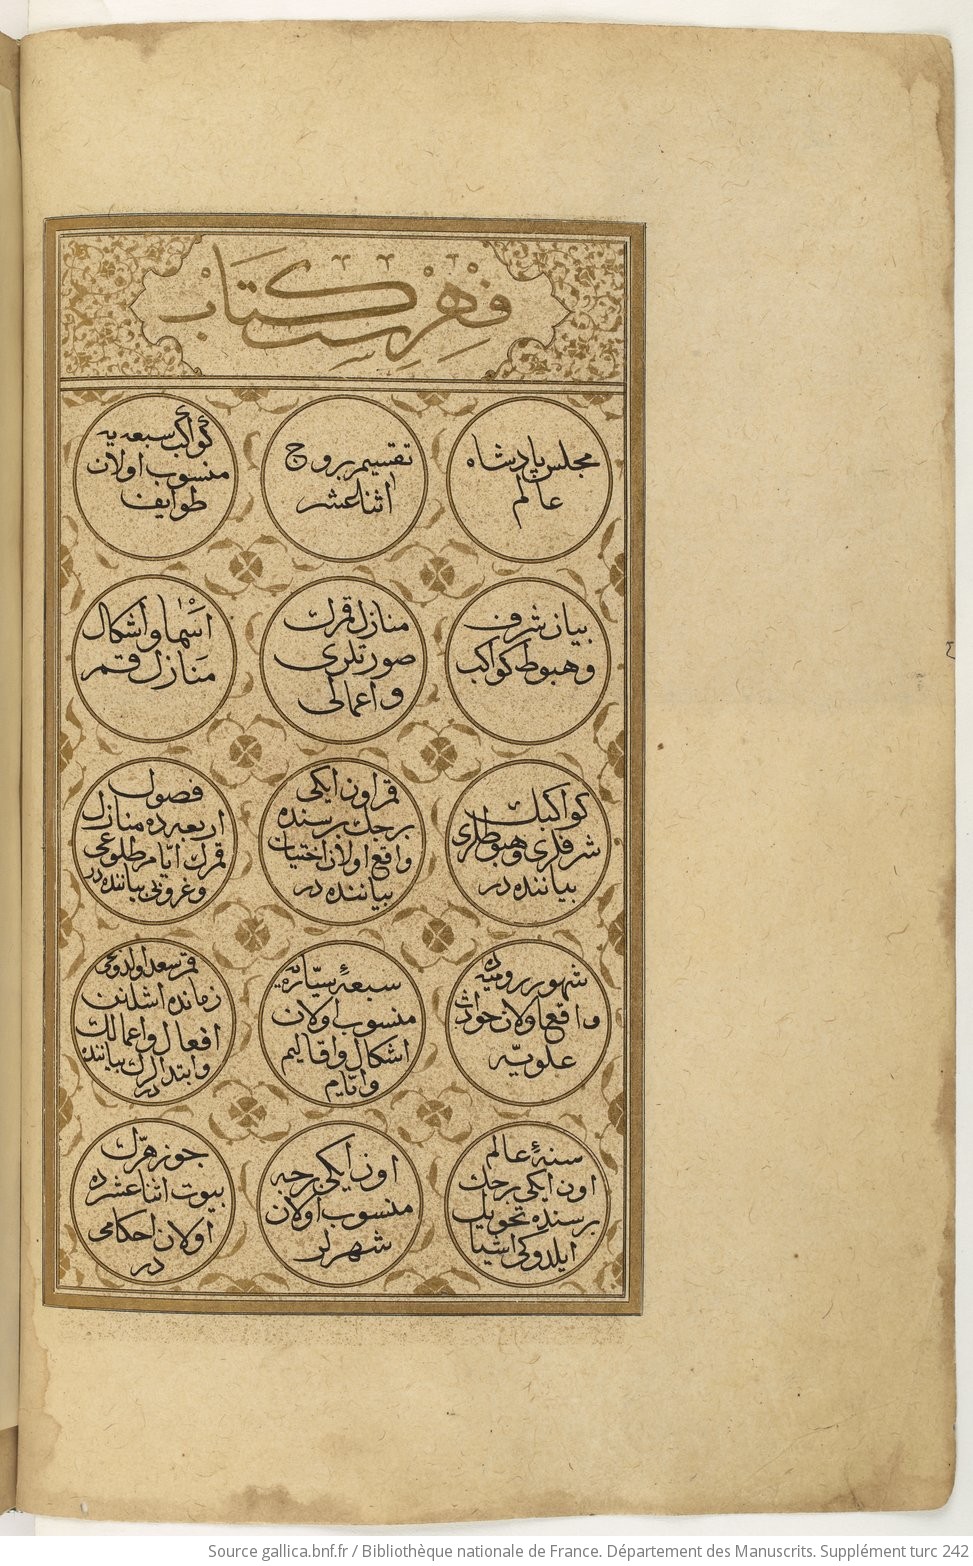 فهرست كتاب
مجلس پادشاه
عالم
تقسيم بروج
اثنا عشر
كواكب سبعه يه
منسوب اولان
طوايف
بيان شرف
وهبوط كواكب
منازل قمرك
صورتلرى
واعمالى
اسما واشكال
منازل قمر
كواكبك
شرفلرى وهبوطلرى
بياننده در
قمر اون ايكى
برجك برسنده
واقع اولان اختيارات
بياننده در
فصول
اربعه ده منازل
قمرك ايام طلوعى
وغروبى بياننده در
شهور روميه ده
واقع اولان حوادث
علويه
سبعهٔ سياره يه
منسوب اولان
اشكال واقاليم
وايام
قمر سعد اولدوغى
زمانده اشلنن
افعال واعمالك
وابتدالرك بياننده
در
سنهٔ عالم
اون ايكى برجك
برسنده تحويل
ايلدوكى اشيا
اون ايكى برجه
منسوب اولان
شهرلر
جوزهرك
بيوت اثنا عشرده
اولان احكامى
در
Source gallica.bnf.fr / Bibliothèque nationale de France. Département des Manuscrits. Supplément turc 242